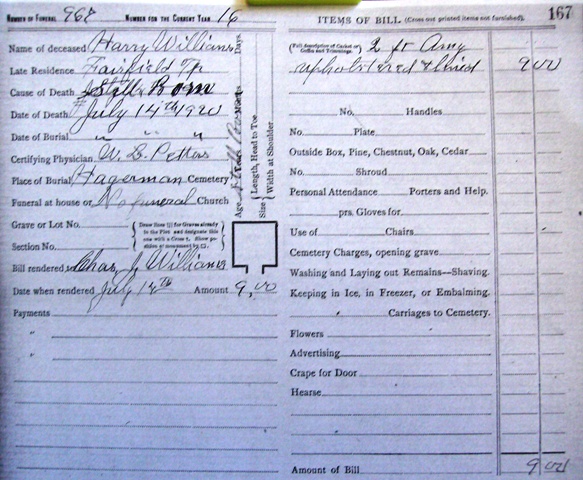 NUMBER OF FUNERAL 967 NUMBER FOR THE CURRENT YEAR 16
Name of deceased Harry Williams
Late Residence Fairfield Tp
Cause of Death Still Born
Date of Death July 14th 1920
Date of Burial " " "
Certifying Physician W. S. Petters
Place of Burial Hagerman Cemetery
Funeral at house or No funeral Church
Grave or Lot No.
Section No.
Bill rendered Chas J Williams
Date when rendered July 14th Amount 9,00
Payments
"
"
Age Years Months Days.
Size { Length, Head to Toe
Width at Shoulder
ITEMS OF BILL (Cross out printed items not furnished). 167
(Full description of Casket or Coffin and Trimmings. 2 ft
upholstered & lined 9 00
No. Handles
No. Plate
Outside Box, Pine, Chestnut, Oak, Cedar
No. Shroud
Personal Attendance Porters and Help.
prs. Gloves for
Use of Chairs.
Cemetery Charges, opening grave
Washing and Laying out Remains—Shaving.
Keeping in Ice, in Freezer, or Embalming.
Carriages to Cemetery.
Flowers
Advertising
Crape for Door
Hearse
Amount of Bill 9 00